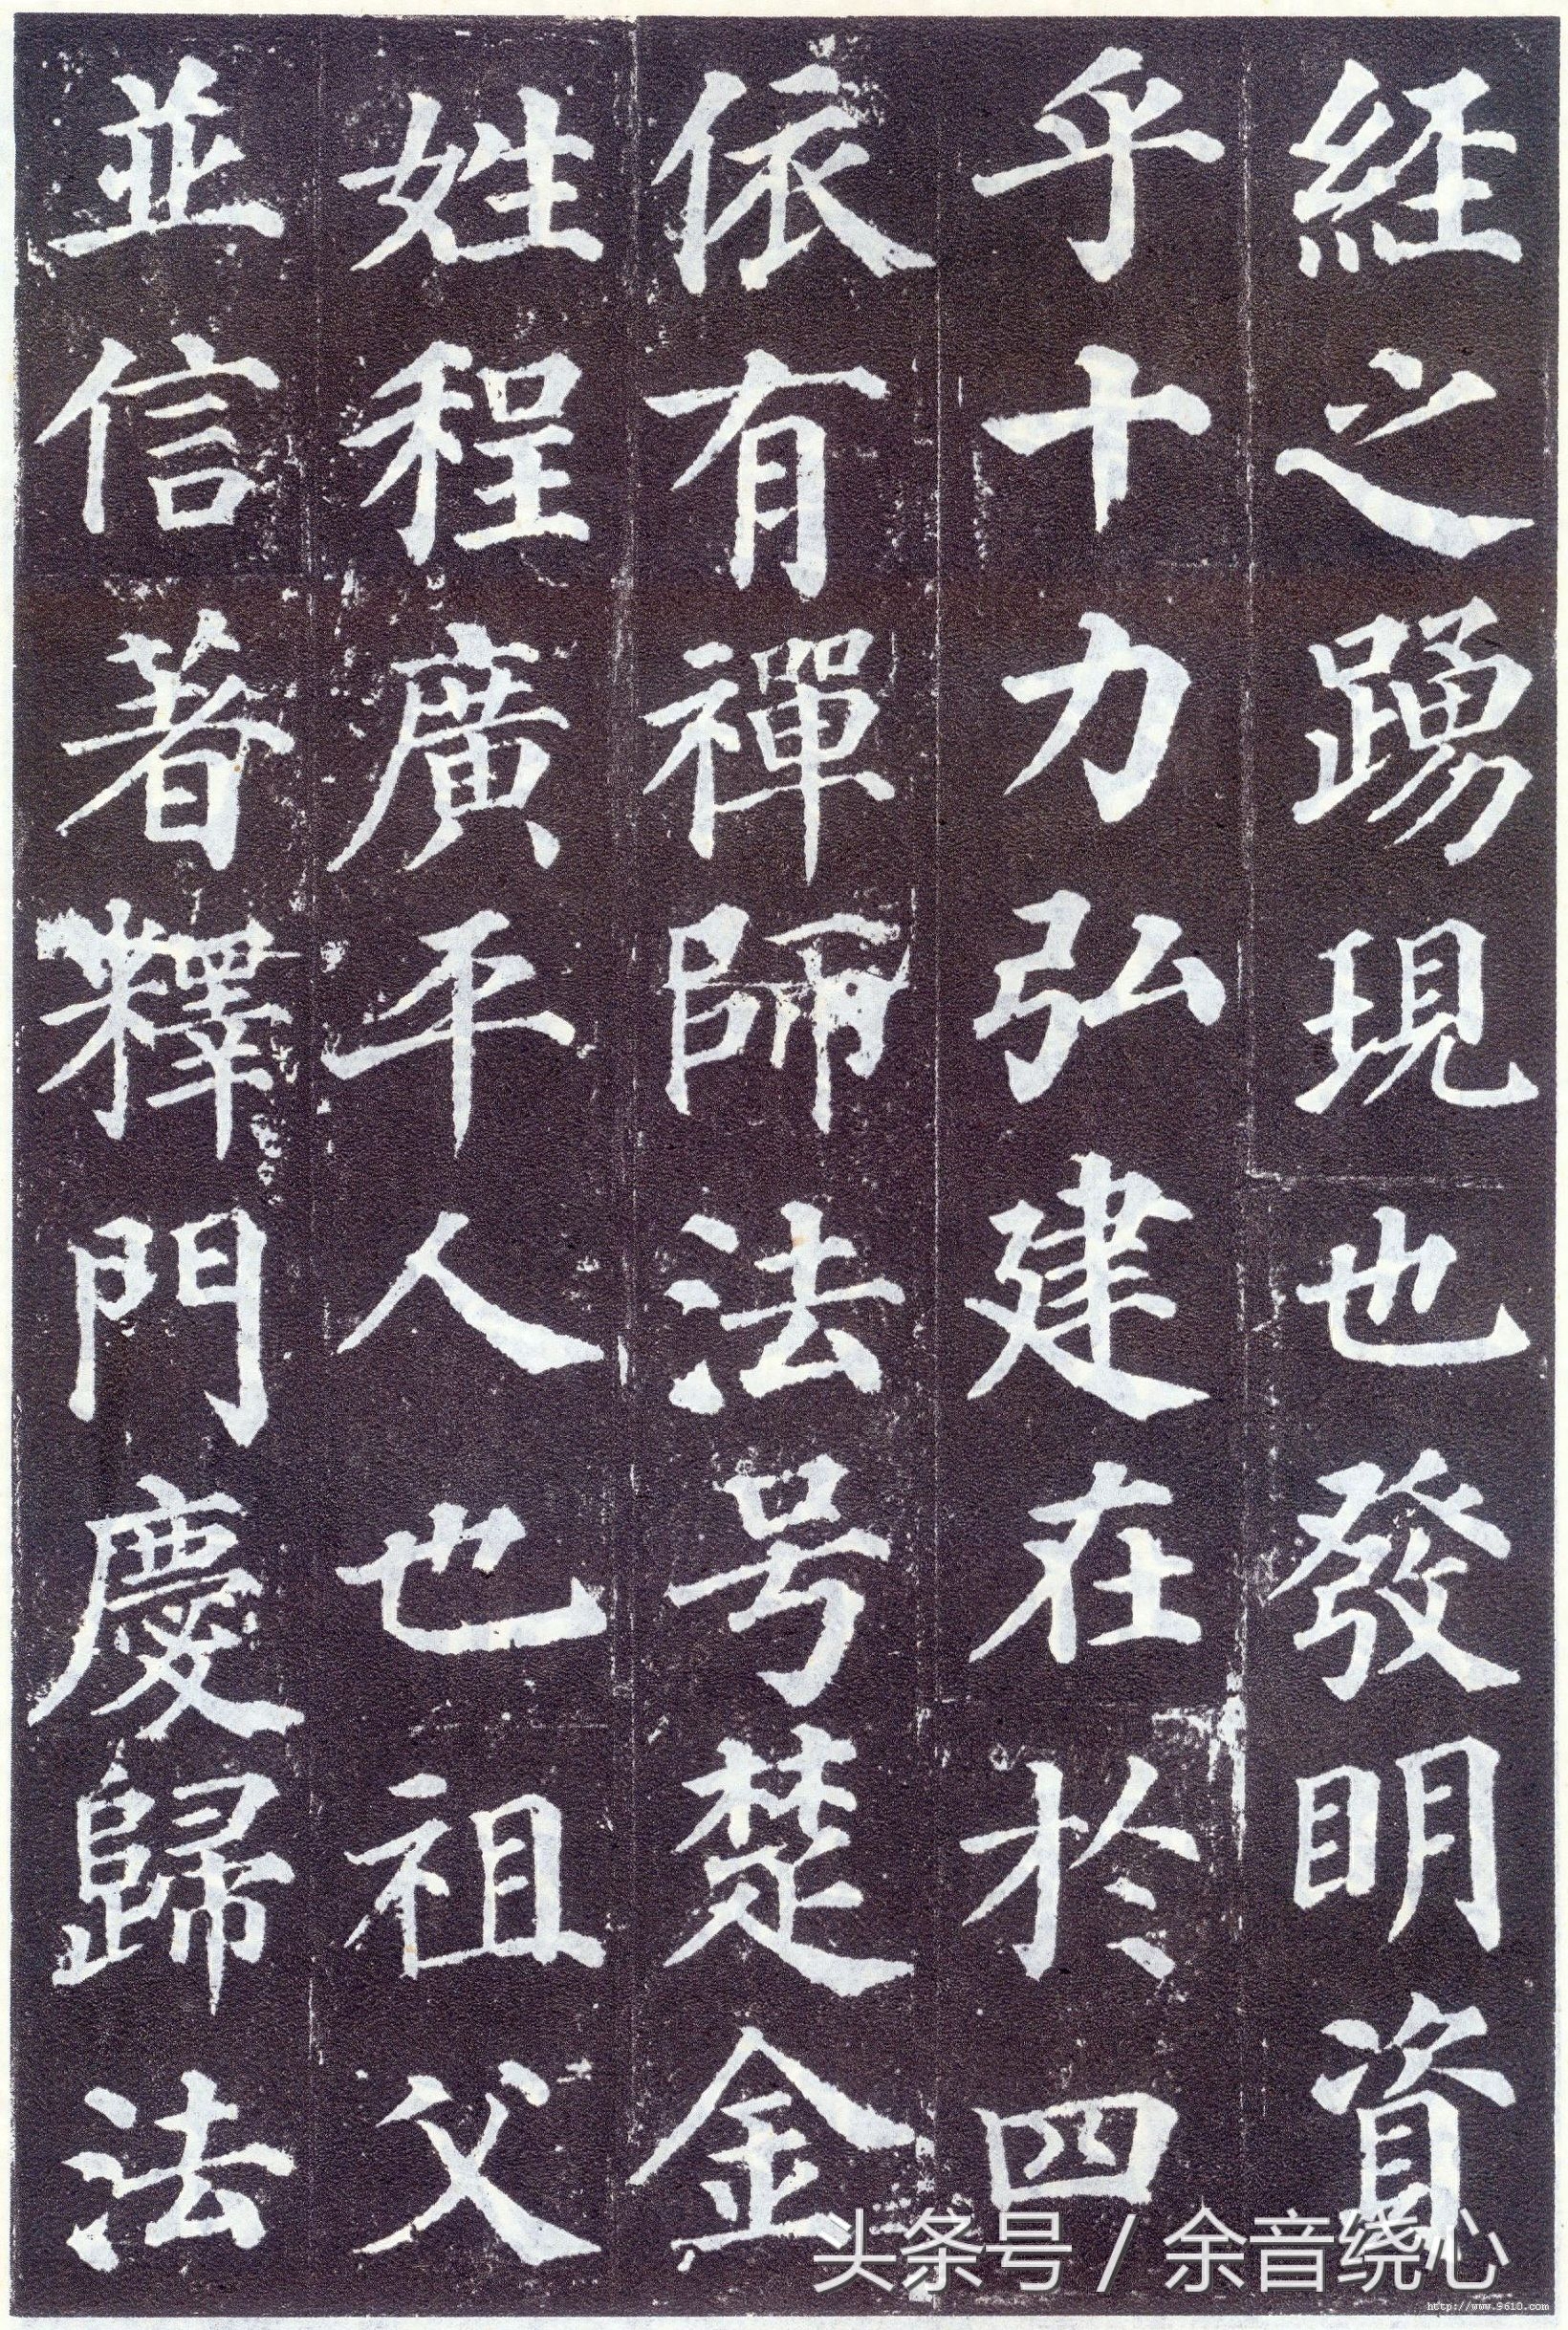 經之踴現也發明資
乎十力弘建在於四
依有禪師法号楚金
姓程廣平人也祖父
並信著釋門慶歸法
头条号 / 余音绕心
http://www.9610.com